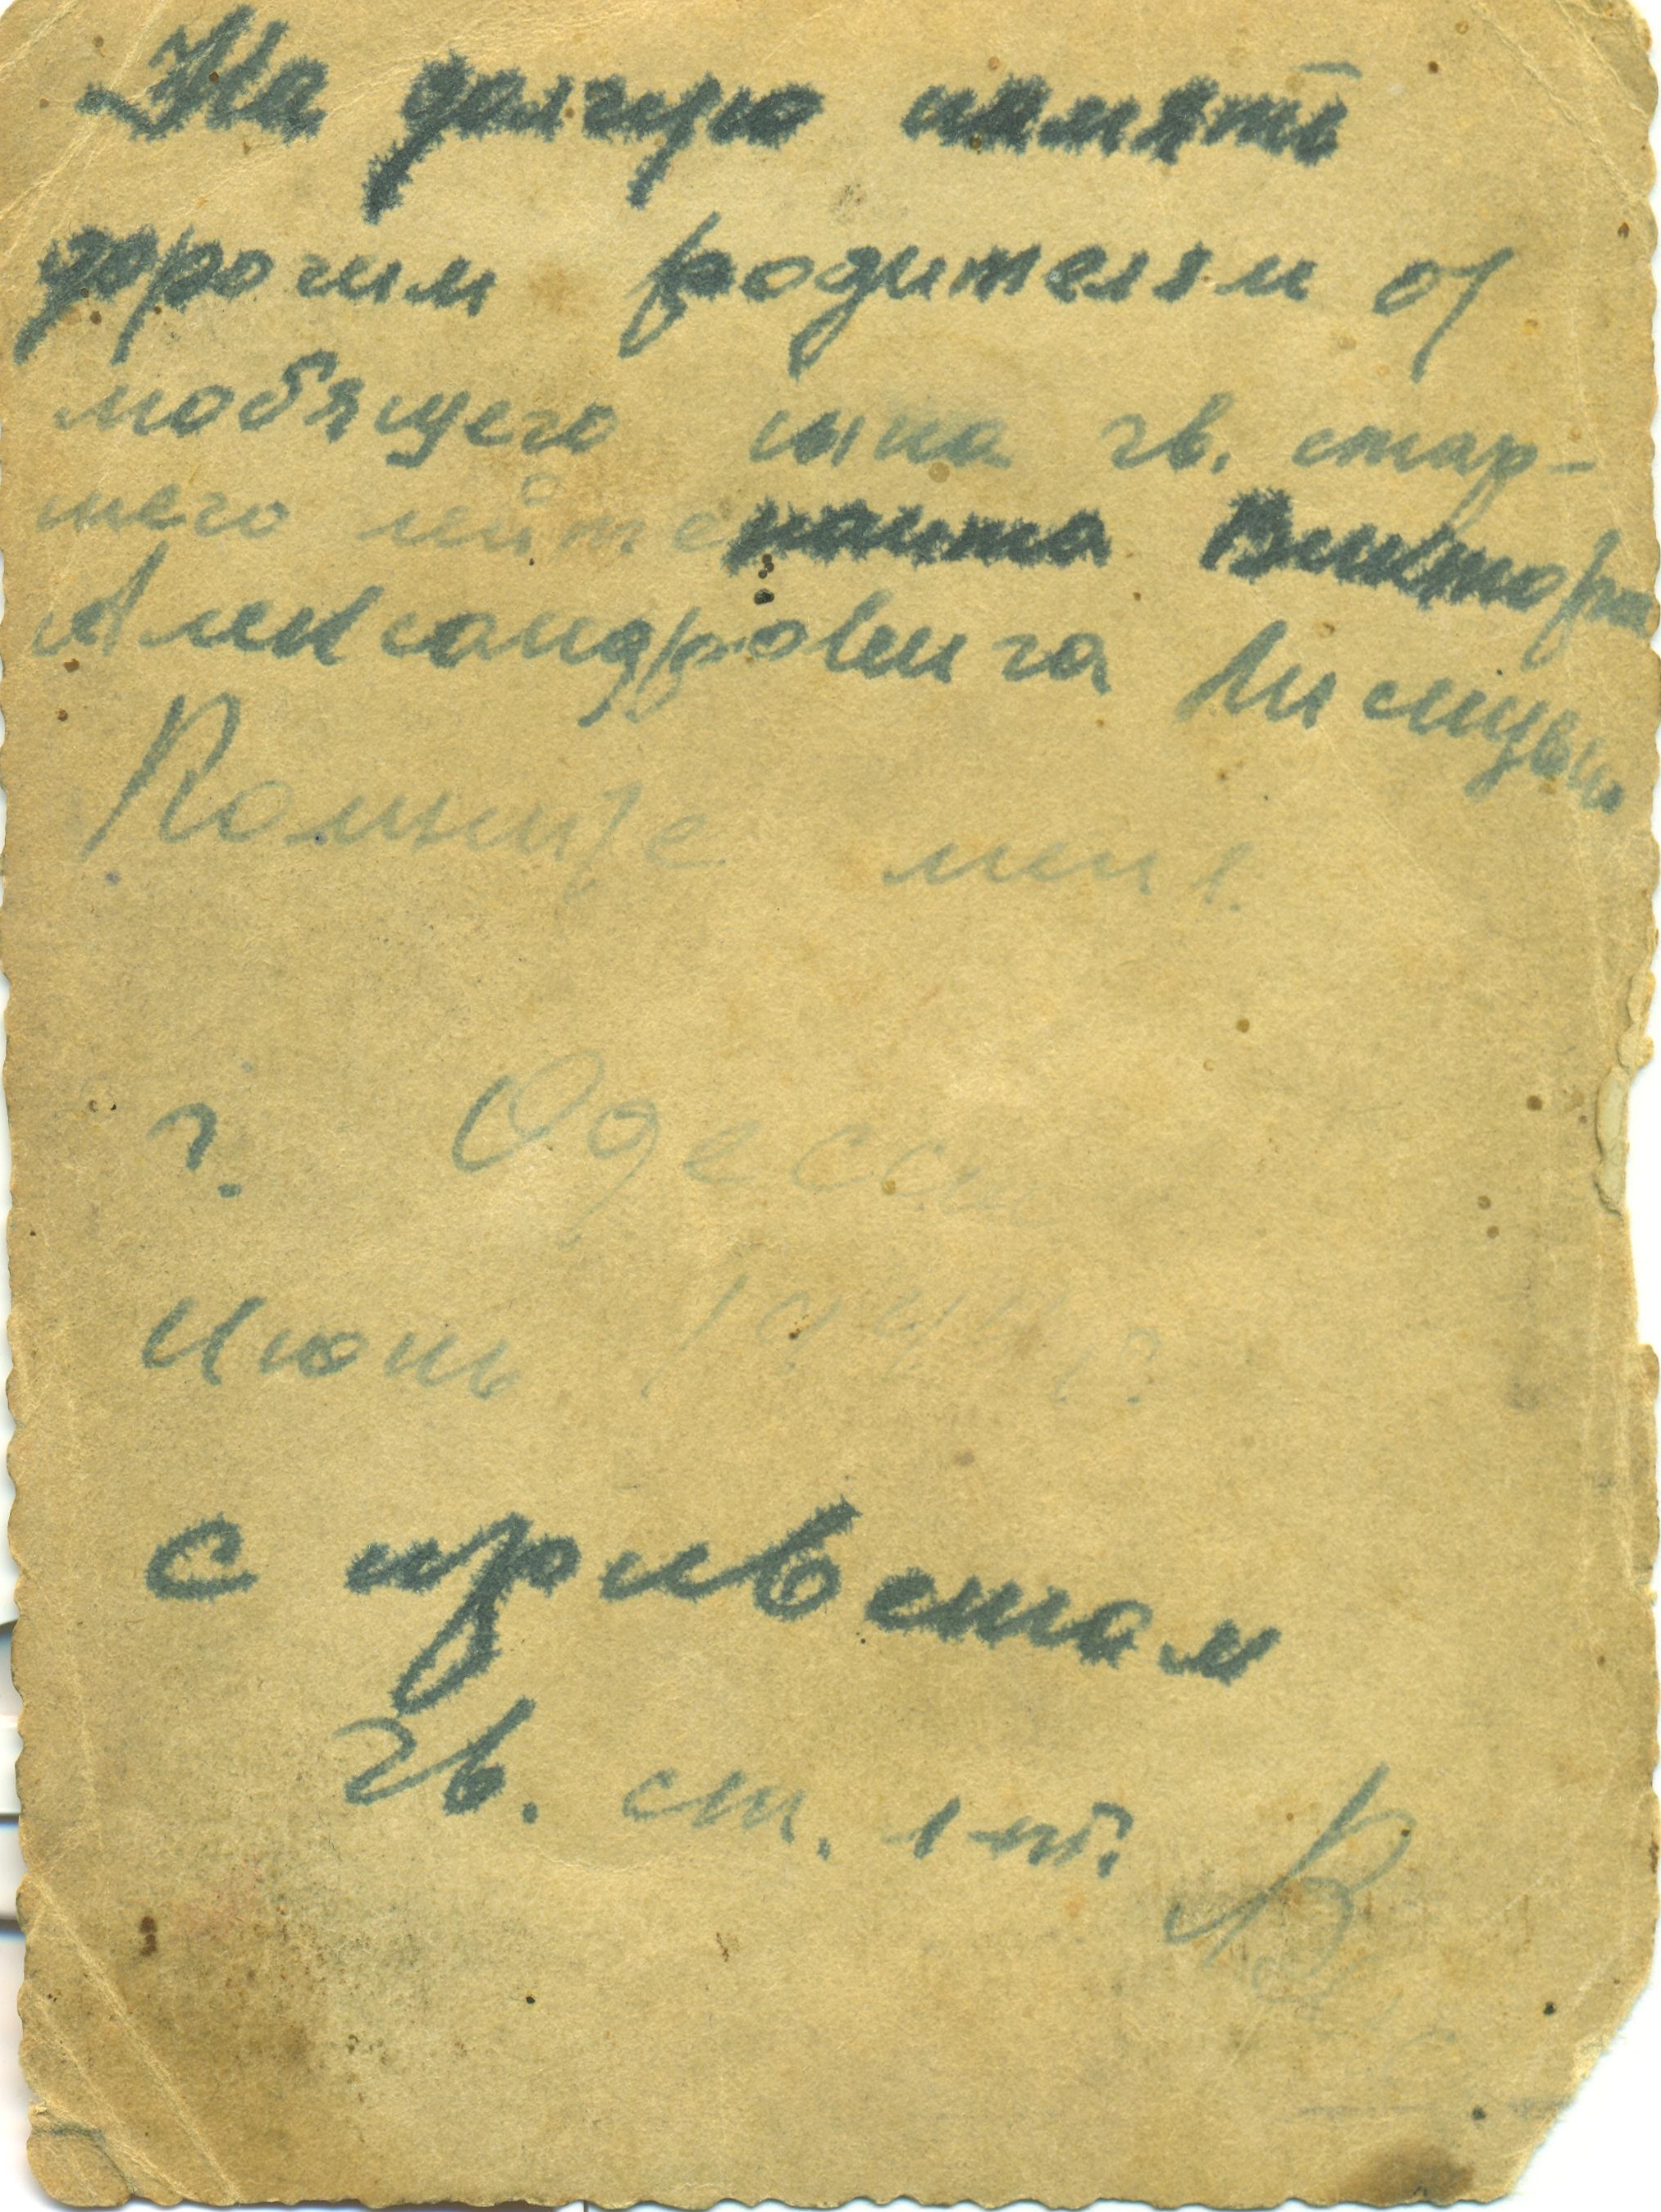 На долгую память
дорогим родителям от
любящего сына гв. стар-
шего лейтенанта Виктора
Александровича
Помните меня.
г. Одесса
Июнь 1944 г.
С приветом
гв. ст. л-т.